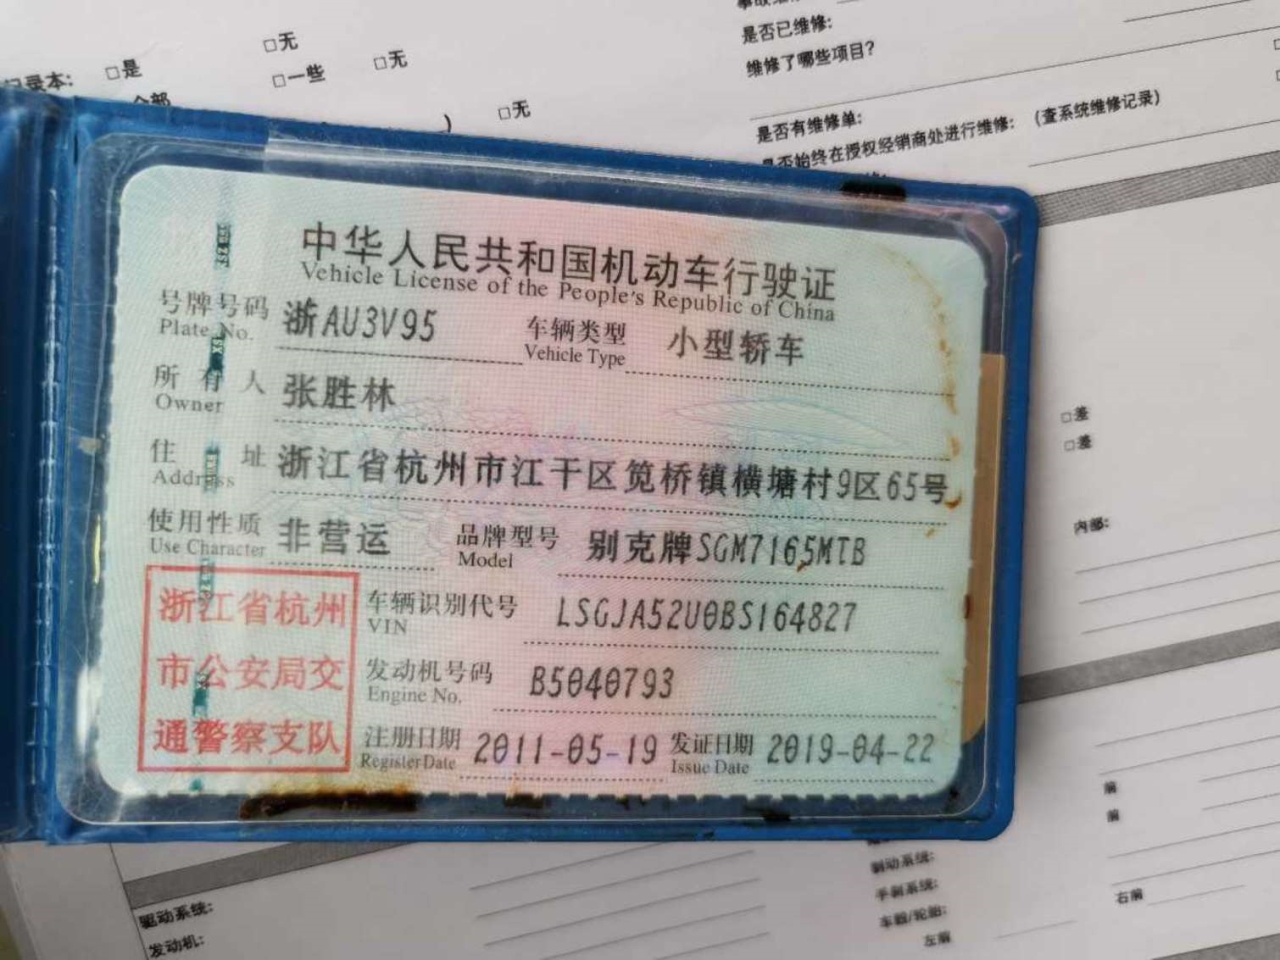 □无
记录本: □是 □一些 □无
全部 ) □无
是否已维修:
维修了哪些项目?
是否有维修单:
是否始终在授权经销商处进行维修: (查系统维修记录)
中华人民共和国机动车行驶证
Vehicle License of the People's Republic of China
号牌号码 浙AU3V95 车辆类型 小型轿车
Plate No. Vehicle Type
所有人 张胜林
Owner
住址 浙江省杭州市江干区笕桥镇横塘村9区65号
Address
使用性质 非营运 品牌型号 别克牌SGM7165MTB
Use Character Model
浙江省杭州
市公安局交
通警察支队
车辆识别代号 LSGJA52U0BS164827
VIN
发动机号码 B5040793
Engine No.
注册日期 2011-05-19 发证日期 2019-04-22
Register Date Issue Date
□差
□差
内部:
前
前
制动系统:
手刹系统:
车毂/轮胎: 右前
左前
驱动系统:
发动机: